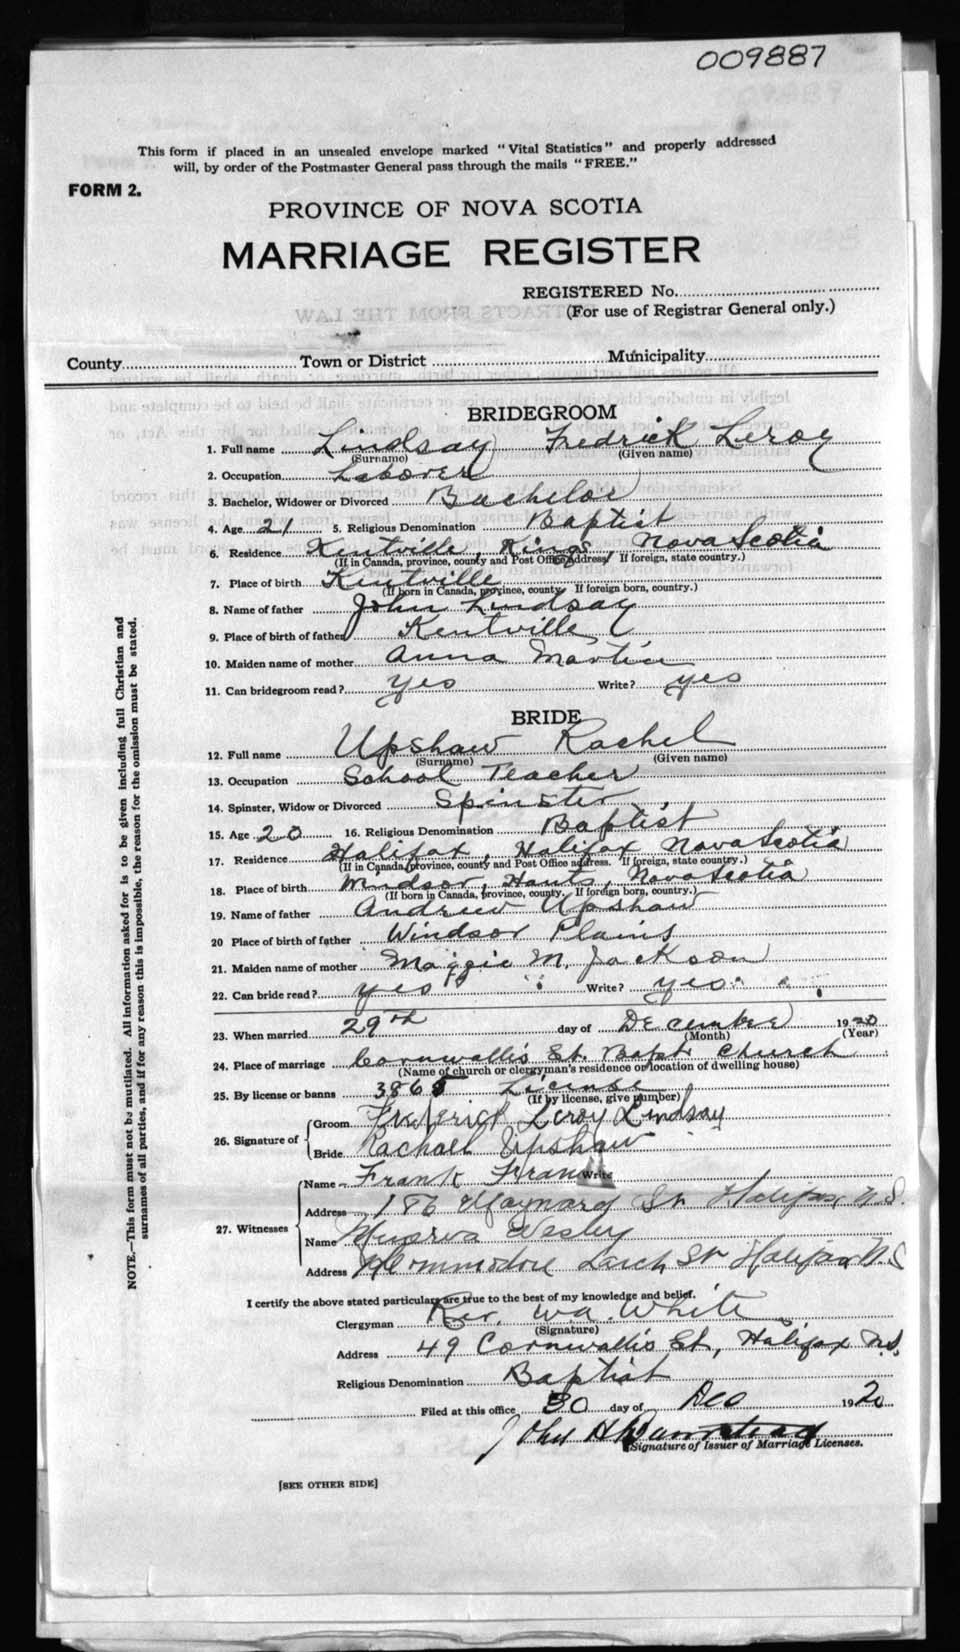 009887
This form if placed in an unsealed envelope marked "Vital Statistics" and properly addressed
will, by order of the Postmaster General pass through the mails "FREE."
FORM 2.
PROVINCE OF NOVA SCOTIA
MARRIAGE REGISTER
REGISTERED No.
(For use of Registrar General only.)
County Town or District Municipality
BRIDEGROOM
1. Full name Lindsay Fredrick Leroy
(Surname) (Given name)
2. Occupation Laborer
3. Bachelor, Widower or Divorced Bachelor
4. Age 21 5. Religious Denomination Baptist
6. Residence Kentville, Kings, Nova Scotia
(If in Canada, province, county and Post Office address. If foreign, state country.)
7. Place of birth Kentville
(If born in Canada, province, county. If foreign born, country.)
8. Name of father John Lindsay
9. Place of birth of father Kentville
10. Maiden name of mother Anna Martin
11. Can bridegroom read? yes Write? yes
BRIDE
12. Full name Upshaw Rachel
(Surname) (Given name)
13. Occupation School Teacher
14. Spinster, Widow or Divorced Spinster
15. Age 20 16. Religious Denomination Baptist
17. Residence Halifax, Halifax Nova Scotia
(If in Canada, province, county and Post Office address. If foreign, state country.)
18. Place of birth Windsor, Hants, Nova Scotia
(If born in Canada, province, county. If foreign born, country.)
19. Name of father Andrew Upshaw
20 Place of birth of father Windsor Plains
21. Maiden name of mother Maggie M. Jackson
22. Can bride read? yes Write? yes
23. When married 29th day of December 1920
(Month) (Year)
24. Place of marriage Cornwallis St. Bapt Church
(Name of church or clergyman's residence or location of dwelling house)
25. By license or banns 3865 License
(If by license, give number)
26. Signature of Groom Frederick Leroy Lindsay
Bride Rachael Upshaw
27. Witnesses
Name Frank
Address Maynard St Halifax N.S.
Name Minerva Wesley
Address St Halifax N.S
I certify the above stated particulars are true to the best of my knowledge and belief.
Clergyman Rev. W.A. White
(Signature)
Address 49 Cornwallis St, Halifax N.S.
Religious Denomination Baptist
Filed at this office 30 day of Dec 1920
John H
Signature of Issuer of Marriage Licenses.
[SEE OTHER SIDE]
NOTE.—This form must not be mutilated. All information asked for is to be given including full Christian and
surnames of all parties, and if for any reason this is impossible, the reason for the omission must be stated.